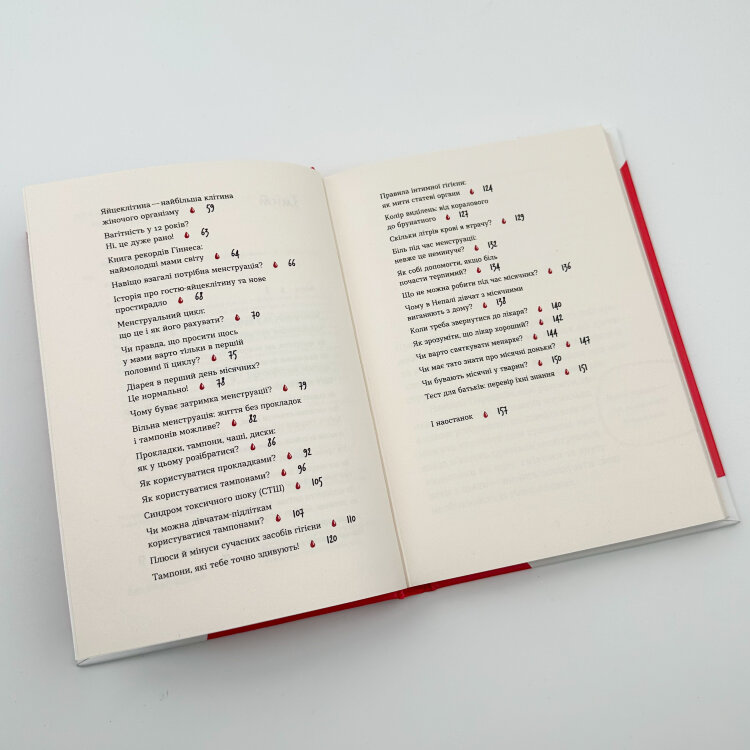 Яйцеклітина — найбільша клітина
жіночого організму 59
Вагітність у 12 років?
Ні, це дуже рано! 63
Книга рекордів Гіннеса:
наймолодші мами світу 64
Навіщо взагалі потрібна менструація? 66
Історія про гостю-яйцеклітину та нове
простирадло 68
Менструальний цикл:
що це і як його рахувати? 70
Чи правда, що просити щось
у мами варто тільки в першій
половині її циклу? 75
Діарея в перший день місячних?
Це нормально! 78
Чому буває затримка менструації? 79
Вільна менструація: життя без прокладок
і тампонів можливе? 82
Прокладки, тампони, чаші, диски:
як у цьому розібратися? 86
Як користуватися прокладками? 92
Як користуватися тампонами? 96
Синдром токсичного шоку (СТШ) 105
Чи можна дівчатам-підліткам
користуватися тампонами? 107
Плюси й мінуси сучасних засобів гігієни 110
Тампони, які тебе точно здивують! 120
Правила інтимної гігієни:
як мити статеві органи 124
Колір виділень: від коралового
до брунатного 127
Скільки літрів крові я втрачу? 129
Біль під час менструації:
невже це неминуче? 132
Як собі допомогти, якщо біль
почасти терпимий? 134
Що не можна робити під час місячних? 136
Чому в Непалі дівчат з місячними
виганяють з дому? 138
Коли треба звернутися до лікаря? 140
Як зрозуміти, що лікар хороший? 142
Чи варто святкувати менархе? 144
Чи має тато знати про місячні доньки? 147
Чи бувають місячні у тварин? 150
Тест для батьків: перевір їхні знання 151
І наостанок 157